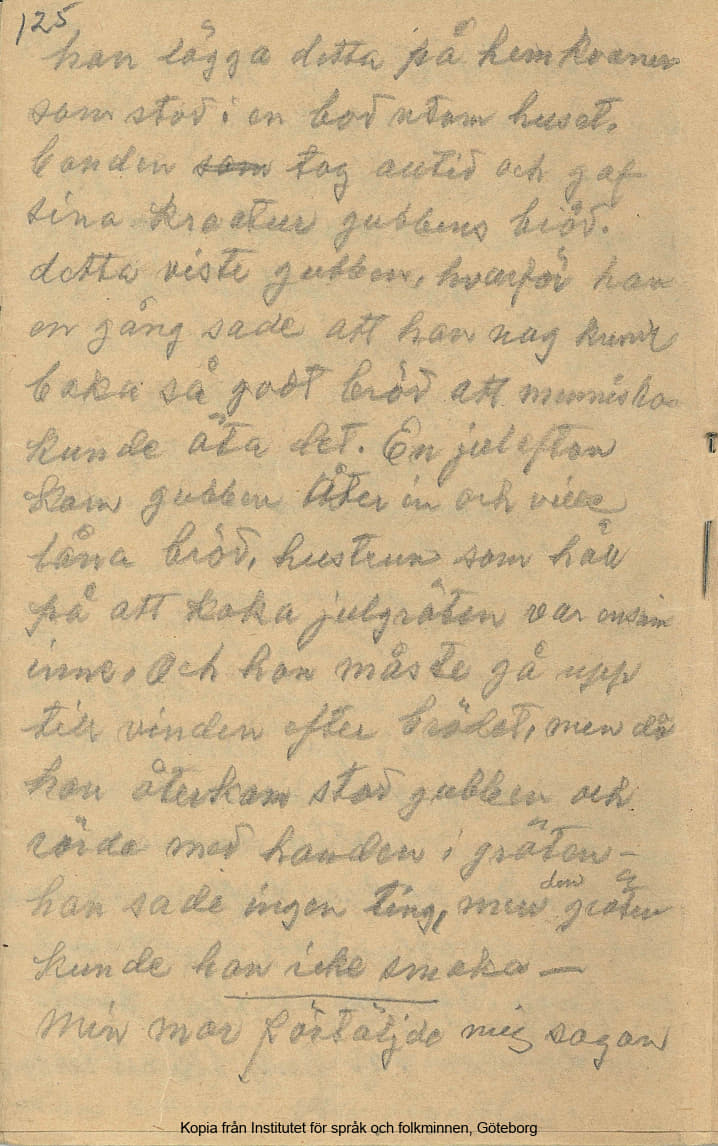 125
han lägga detta på hemkvarnen
som stod i en bod utom huset.
bonden som tog altid och gaf
sina kreatur gubbens bröd.
detta viste gubben, hvarför han
en gång sade att han nog kunde
baka så godt bröd att menniskor
kunde äta det. En julafton
kom gubben åter in och ville
låna bröd, hustrun som höll
på att koka julgröten var ensam
inne, och hon måste gå upp
till vinden efter brödet, men då
hon återkom stod gubben och
rörde med handen i gröten –
hon sade ingen ting, men den gröten
kunde hon icke smaka —
Min mor förtäljde mig sagan
Kopia från Institutet för språk och folkminnen, Göteborg